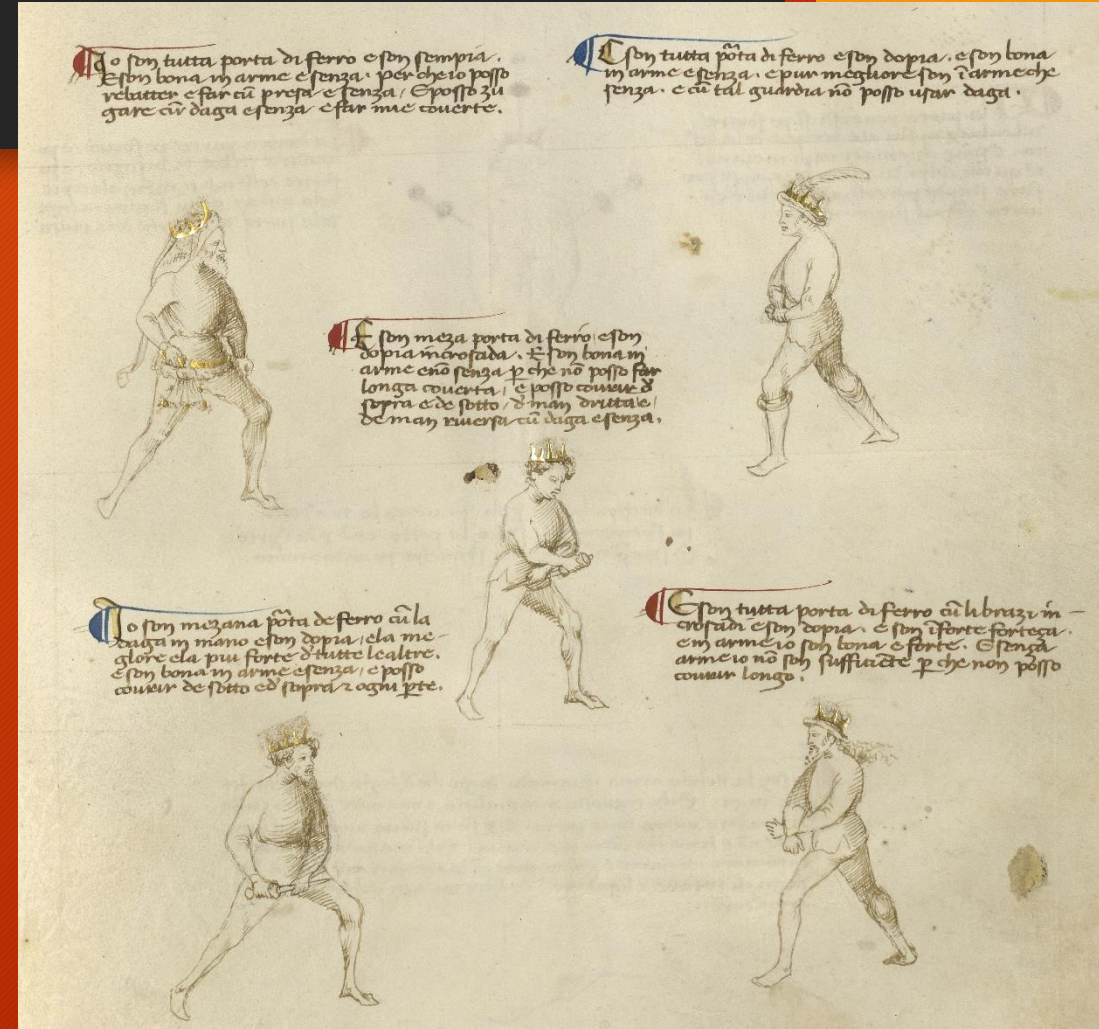 Io son tutta porta di ferro e son sempia.
E son bona in arme e senza. per che io posso
rebatter e far cū presa e senza / E posso zu
gare cū daga e senza e far mie couerte.
E son tutta pōta di ferro e son dopia. e son bona
in arme e senza. e pur megliore son ī arme che
senza. e cū tal guardia nō posso usar daga.
E son meza porta di ferro e son
dopia incrosada. E son bona in
arme e nō senza p che nō posso far
longa couerta / e posso courir d
sopra e de sotto / d man dritta e /
de man riuersa cū daga e senza.
Io son mezana pōta de ferro cū la
daga in mano e son dopia / e la me-
gliore e la piu forte d tutte le altre.
e son bona in arme e senza / e posso
courir de sotto e d sopra z ogni pte.
E son tutta porta di ferro cū li brazi in-
crosadi e son dopia. e son ī forte forteça.
e in arme io son bona e forte. E senza
arme io nō son sufficiēte p che non posso
courir longo.